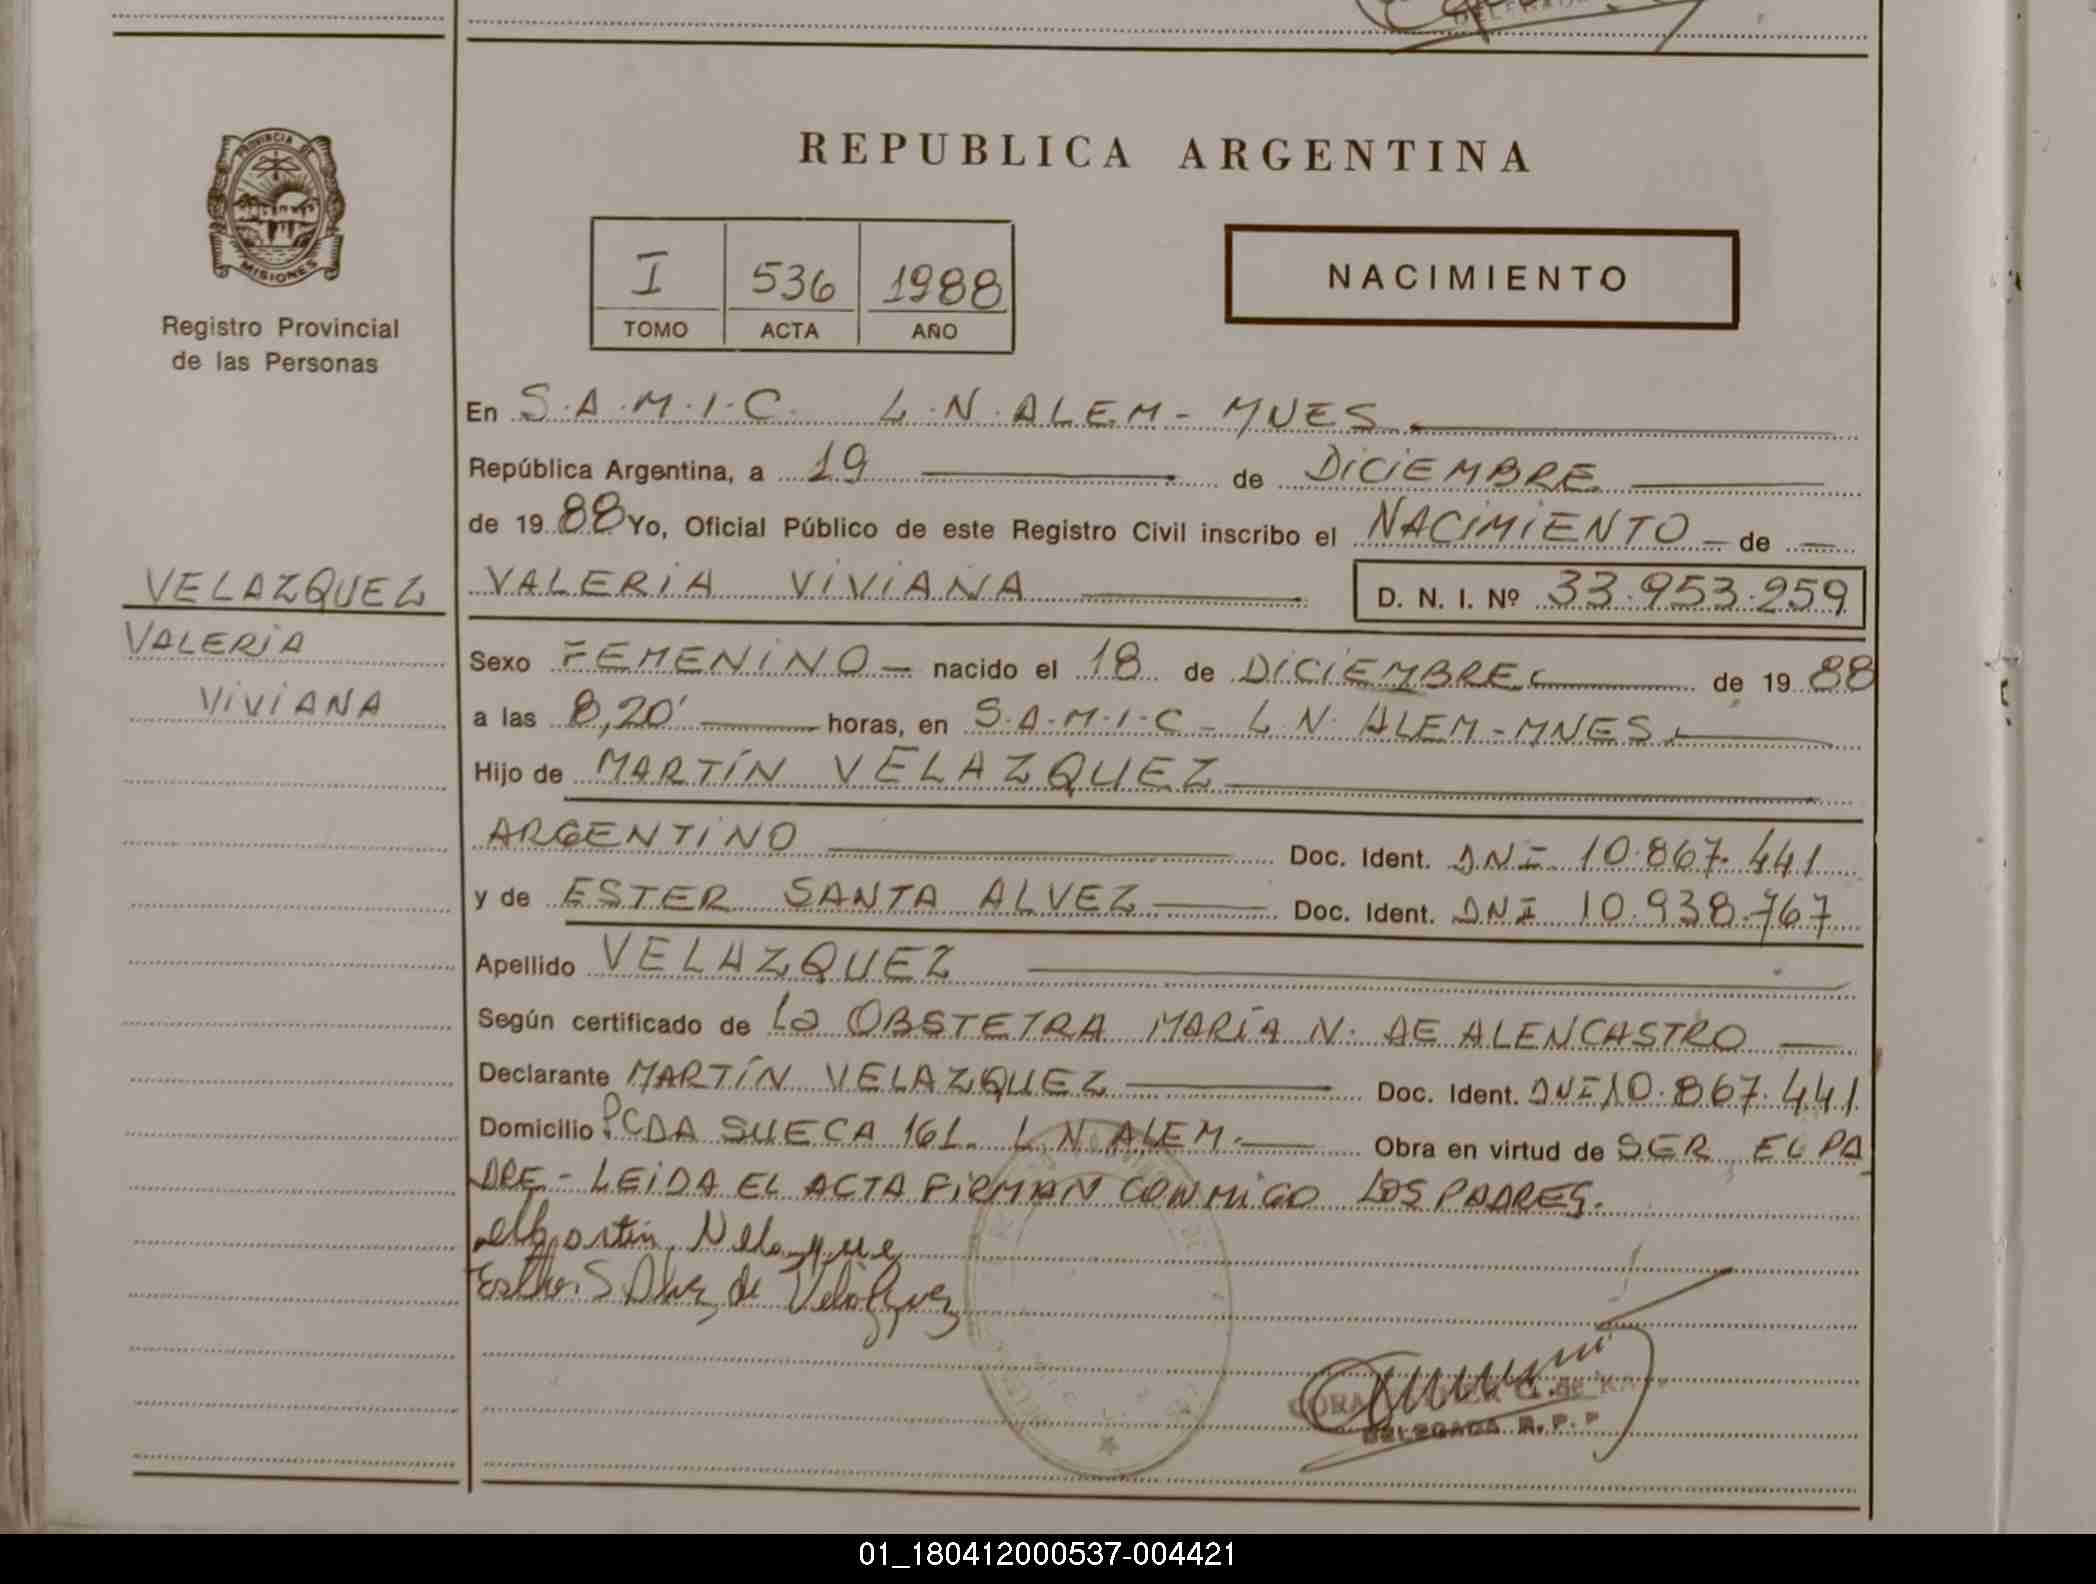 PROVINCIA DE
MISIONES
Registro Provincial
de las Personas
REPUBLICA ARGENTINA
I 536 1988
TOMO ACTA AÑO
NACIMIENTO
En S.A.M.I.C. L.N. ALEM - MNES
República Argentina, a 19 de DICIEMBRE
de 1988 Yo, Oficial Público de este Registro Civil inscribo el NACIMIENTO de
VELAZQUEZ
VALERIA
VIVIANA
VALERIA VIVIANA D. N. I. Nº 33.953.259
Sexo FEMENINO nacido el 18 de DICIEMBRE de 1988
a las 8,20' horas, en S.A.M.I.C - L.N. ALEM - MNES
Hijo de MARTÍN VELAZQUEZ
ARGENTINO Doc. Ident. DNI 10.867.441
y de ESTER SANTA ALVEZ Doc. Ident. DNI 10.938.767
Apellido VELAZQUEZ
Según certificado de La OBSTETRA MARÍA N. DE ALENCASTRO
Declarante MARTÍN VELAZQUEZ Doc. Ident. DNI 10.867.441
Domicilio PCDA SUECA 161. L.N ALEM. Obra en virtud de SER EL PA
DRE - LEIDA EL ACTA FIRMAN CONMIGO LOS PADRES.
DELEGADA R. P. P
01_180412000537-004421